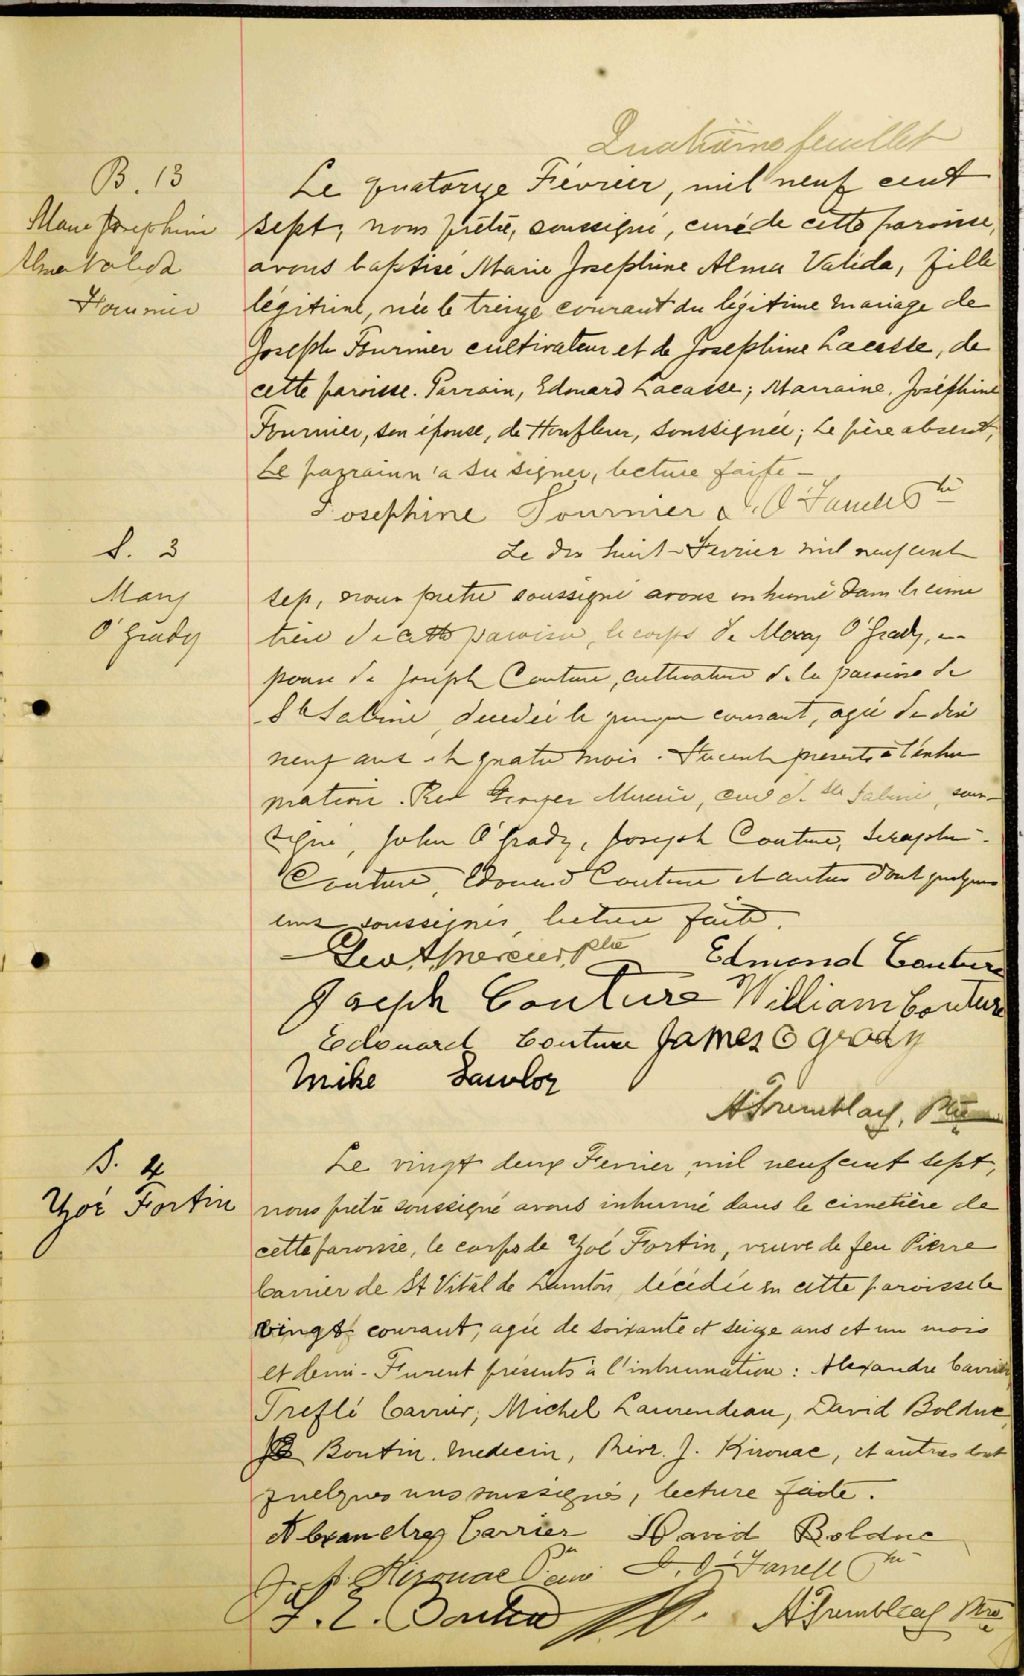 Quatrième feuillet
B. 13
Marie Josephine
Alma Valida
Fournier
Le quatorze Février, mil neuf cent
sept, nous prêtre, soussigné, curé de cette paroisse,
avons baptisé Marie Josephine Alma Valida, fille
légitime, née le treize courant du légitime mariage de
Joseph Fournier cultivateur et de Josephine Lacasse, de
cette paroisse. Parrain, Edouard Lacasse; Marraine, Joséphine
Fournier, son épouse, de Honfleur, soussignée; Le père absent,
Le parrain n'a su signer, lecture faite —
Josephine Fournier O'Farrell Ptre
S. 3
Mary
O'Grady
Le dix huit Fevrier mil neuf cent
sep, nous pretre soussigné avons inhumé dans le cime
tière de cette paroisse, le corps de Mary O'Grady, é-
pouse de Joseph Couture, cultivateur de la paroisse de
Ste Sabine, decedée le courant, agée de dix
neuf ans et quatre mois. Furent presents à l'inhu
mation. Rev Georges Mercier, curé de Ste Sabine, sous-
signé, John O'Grady, Joseph Couture, Seraphin
Couture, Edouard Couture et autres dont quelques
uns soussignés, lecture faite.
Geo A Mercier, ptre Edmond Couture
Joseph Couture William Couture
Edouard Couture James O grady
Mike Lawlor
A Tremblay, Ptre
S. 4
Zoé Fortin
Le vingt deux Fevrier, mil neuf cent sept,
nous prêtre soussigné avons inhumé dans le cimetière de
cette paroisse, le corps de Zoé Fortin, veuve de feu Pierre
Carrier de St Vital de Lambton, décédée en cette paroisse le
vingt courant, agée de soixante et seize ans et un mois
et demi - Furent présents à l'inhumation: Alexandre Carrier,
Treflé Carrier, Michel Laurendeau, David Bolduc,
Boutin, médecin, Rév. J. Kirouac, et autres dont
quelques uns soussignés, lecture faite.
Alexandre Carrier David Bolduc
Kirouac Ptre J. O'Farrell Ptre
J. E. Boutin A Tremblay Ptre